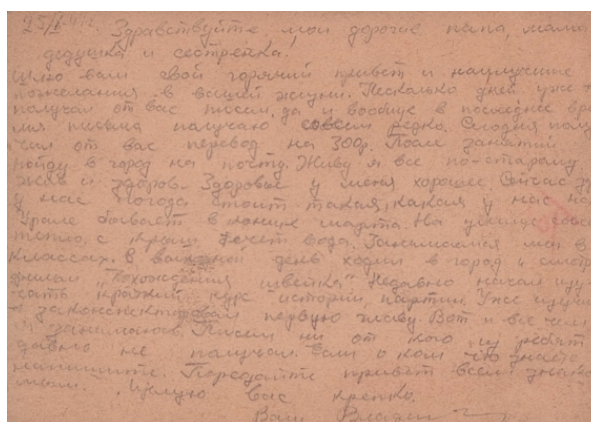 Здравствуйте, мои дорогие папа, мама
дедушка и сестренка!
Шлю вам свой горячий привет и наилучшие
пожелания в вашей жизни. Несколько дней уже не
получал от вас писем, да и вообще в последнее вре
мя письма получаю совсем редко. Сегодня полу
чил от вас перевод на 300р. После занятий
пойду в город на почту. Живу я все по-старому
жив и здоров. Здоровье у меня хорошее. Сейчас
у нас погода стоит такая, какая у нас на
Урале бывает в конце марта. На улице совсем
тепло, с крыш течет вода. Занимаемся мы в
классах. В выходной день ходил в город и смотр
фильм "Похождения швейка". Недавно начал изу
чать краткий курс истории партии. Уже изучил
и законспектировал первую главу. Вот и все чем
занимаюсь. Писем ни от кого из ребят
давно не получал. Если о ком что знаете
напишите. Передайте привет всем знако
мым. Целую вас крепко.
Ваш